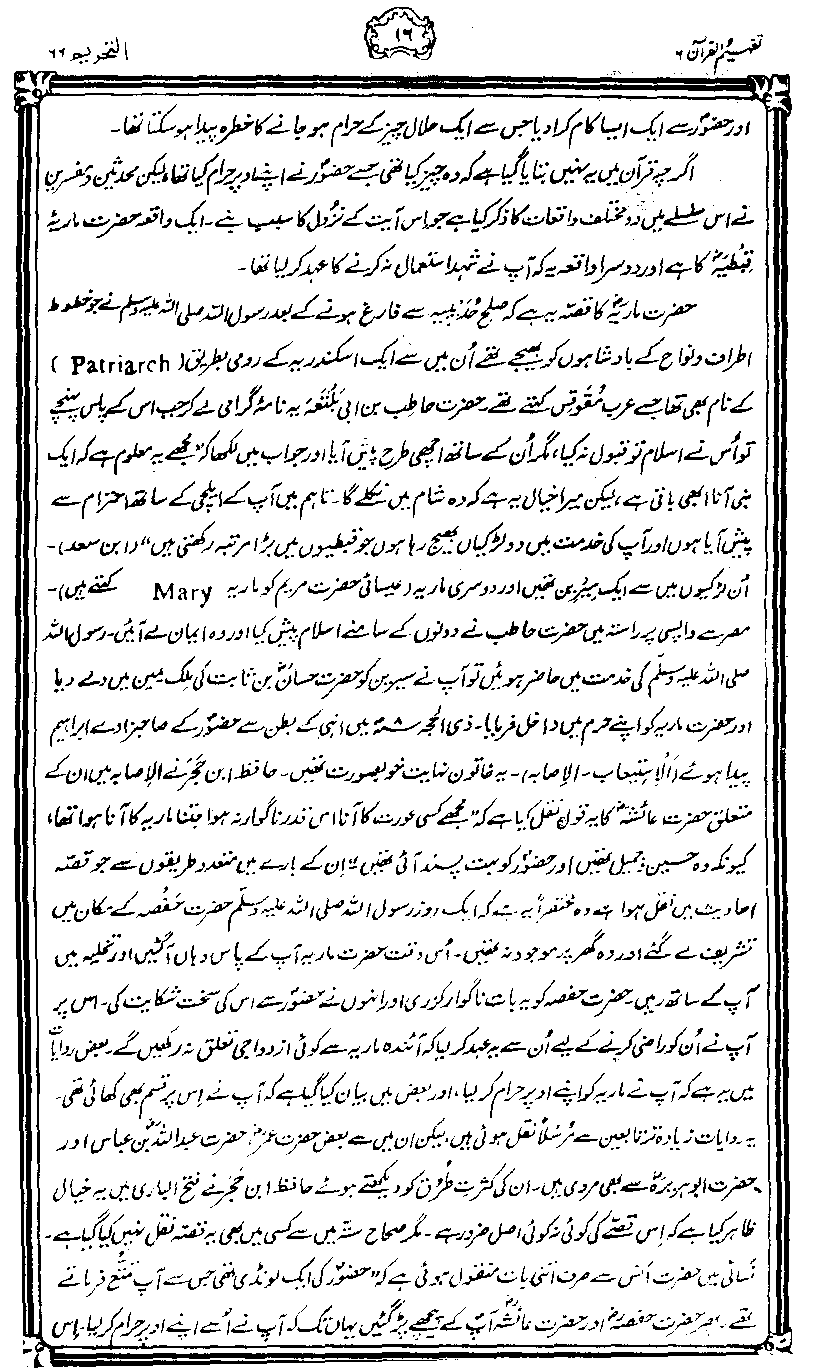 تفہیم القرآن ۶
۱۶
التحریم ۶۶
اور حضورؐ سے ایک ایسا کام کرا دیا جس سے ایک حلال چیز کے حرام ہو جانے کا خطرہ پیدا ہو سکتا تھا۔
اگرچہ قرآن میں یہ نہیں بتایا گیا ہے کہ وہ چیز کیا تھی جسے حضورؐ نے اپنے اوپر حرام کیا تھا، لیکن محدثین و مفسرین
نے اس سلسلے میں دو مختلف واقعات کا ذکر کیا ہے جو اس آیت کے نزول کا سبب بنے۔ ایک واقعہ حضرت ماریۂ
قبطیہؓ کا ہے اور دوسرا واقعہ یہ کہ آپ نے شہد استعمال نہ کرنے کا عہد کر لیا تھا۔
حضرت ماریہؓ کا قصہ یہ ہے کہ صلح حُدَیبیہ سے فارغ ہونے کے بعد رسول اللہ صلی اللہ علیہ وسلم نے جو خطوط
اطراف و نواح کے بادشاہوں کو بھیجے تھے اُن میں سے ایک اسکندریہ کے رومی بطریق (Patriarch)
کے نام بھی تھا جسے عرب مُقَوقِس کہتے تھے۔ حضرت حاطب بن ابی بَلْتَعَہ یہ نامۂ گرامی لے کر جب اس کے پاس پہنچے
تو اُس نے اسلام تو قبول نہ کیا، مگر اُن کے ساتھ اچھی طرح پیش آیا اور جواب میں لکھا کہ "مجھے یہ معلوم ہے کہ ایک
نبی آنا ابھی باقی ہے، لیکن میرا خیال یہ ہے کہ وہ شام میں نکلے گا۔ تاہم میں آپ کے ایلچی کے ساتھ احترام سے
پیش آیا ہوں اور آپ کی خدمت میں دو لڑکیاں بھیج رہا ہوں جو قبطیوں میں بڑا مرتبہ رکھتی ہیں" (ابن سعد)۔
اُن لڑکیوں میں سے ایک سیرین تھیں اور دوسری ماریہ (عیسائی حضرت مریم کو ماریہ Mary کہتے ہیں)۔
مصر سے واپسی پر راستہ میں حضرت حاطب نے دونوں کے سامنے اسلام پیش کیا اور وہ ایمان لے آئیں۔ رسول اللہ
صلی اللہ علیہ وسلم کی خدمت میں حاضر ہوئیں تو آپ نے سیرین کو حضرت حسانؓ بن ثابت کی مِلک یمین میں دے دیا
اور حضرت ماریہ کو اپنے حرم میں داخل فرمایا۔ ذی الحجہ سنہ ۸ھ میں انہی کے بطن سے حضورؐ کے صاحبزادے ابراہیم
پیدا ہوئے (اَلْاِستیعاب۔ الاصابہ)۔ یہ خاتون نہایت خوبصورت تھیں۔ حافظ ابن حَجَر نے الاصابہ میں ان کے
متعلق حضرت عائشہؓ کا یہ قول نقل کیا ہے کہ "مجھے کسی عورت کا آنا اس قدر ناگوار نہ ہوا جتنا ماریہ کا آنا ہوا تھا،
کیونکہ وہ حسین و جمیل تھیں اور حضورؐ کو بہت پسند آئی تھیں"۔ اِن کے بارے میں متعدد طریقوں سے جو قصہ
احادیث میں نقل ہوا ہے وہ مختصراً یہ ہے کہ ایک روز رسول اللہ صلی اللہ علیہ وسلم حضرت حَفْصہ کے مکان میں
تشریف لے گئے اور وہ گھر پر موجود نہ تھیں۔ اُس وقت حضرت ماریہ آپ کے پاس وہاں آ گئیں اور تخلیہ میں
آپ کے ساتھ رہیں۔ حضرت حفصہ کو یہ بات ناگوار گزری اور انہوں نے حضورؐ سے اس کی سخت شکایت کی۔ اس پر
آپ نے اُن کو راضی کرنے کے لیے اُن سے یہ عہد کر لیا کہ آئندہ ماریہ سے کوئی ازدواجی تعلق نہ رکھیں گے۔ بعض روایات
میں یہ ہے کہ آپ نے ماریہ کو اپنے اوپر حرام کر لیا، اور بعض میں بیان کیا گیا ہے کہ آپ نے اِس پر قسم بھی کھائی تھی۔
یہ روایات زیادہ تر تابعین سے مُرسلاً نقل ہوئی ہیں، لیکن ان میں سے بعض حضرت عمرؓ، حضرت عبداللہؓ بن عباس اور
حضرت ابو ہریرہؓ سے بھی مروی ہیں۔ ان کی کثرت طُرُق کو دیکھتے ہوئے حافظ ابن حَجَر نے فتح الباری میں یہ خیال
ظاہر کیا ہے کہ اِس قصے کی کوئی نہ کوئی اصل ضرور ہے۔ مگر صحاح ستہ میں سے کسی میں بھی یہ قصہ نقل نہیں کیا گیا ہے۔
نَسائی میں حضرت انس سے صرف اتنی بات منقول ہوئی ہے کہ "حضورؐ کی ایک لونڈی تھی جس سے آپ تمتُّع فرماتے
تھے۔ پھر حضرت حفصہؓ اور حضرت عائشہؓ آپ کے پیچھے پڑ گئیں یہاں تک کہ آپ نے اُسے اپنے اوپر حرام کر لیا۔ اِس